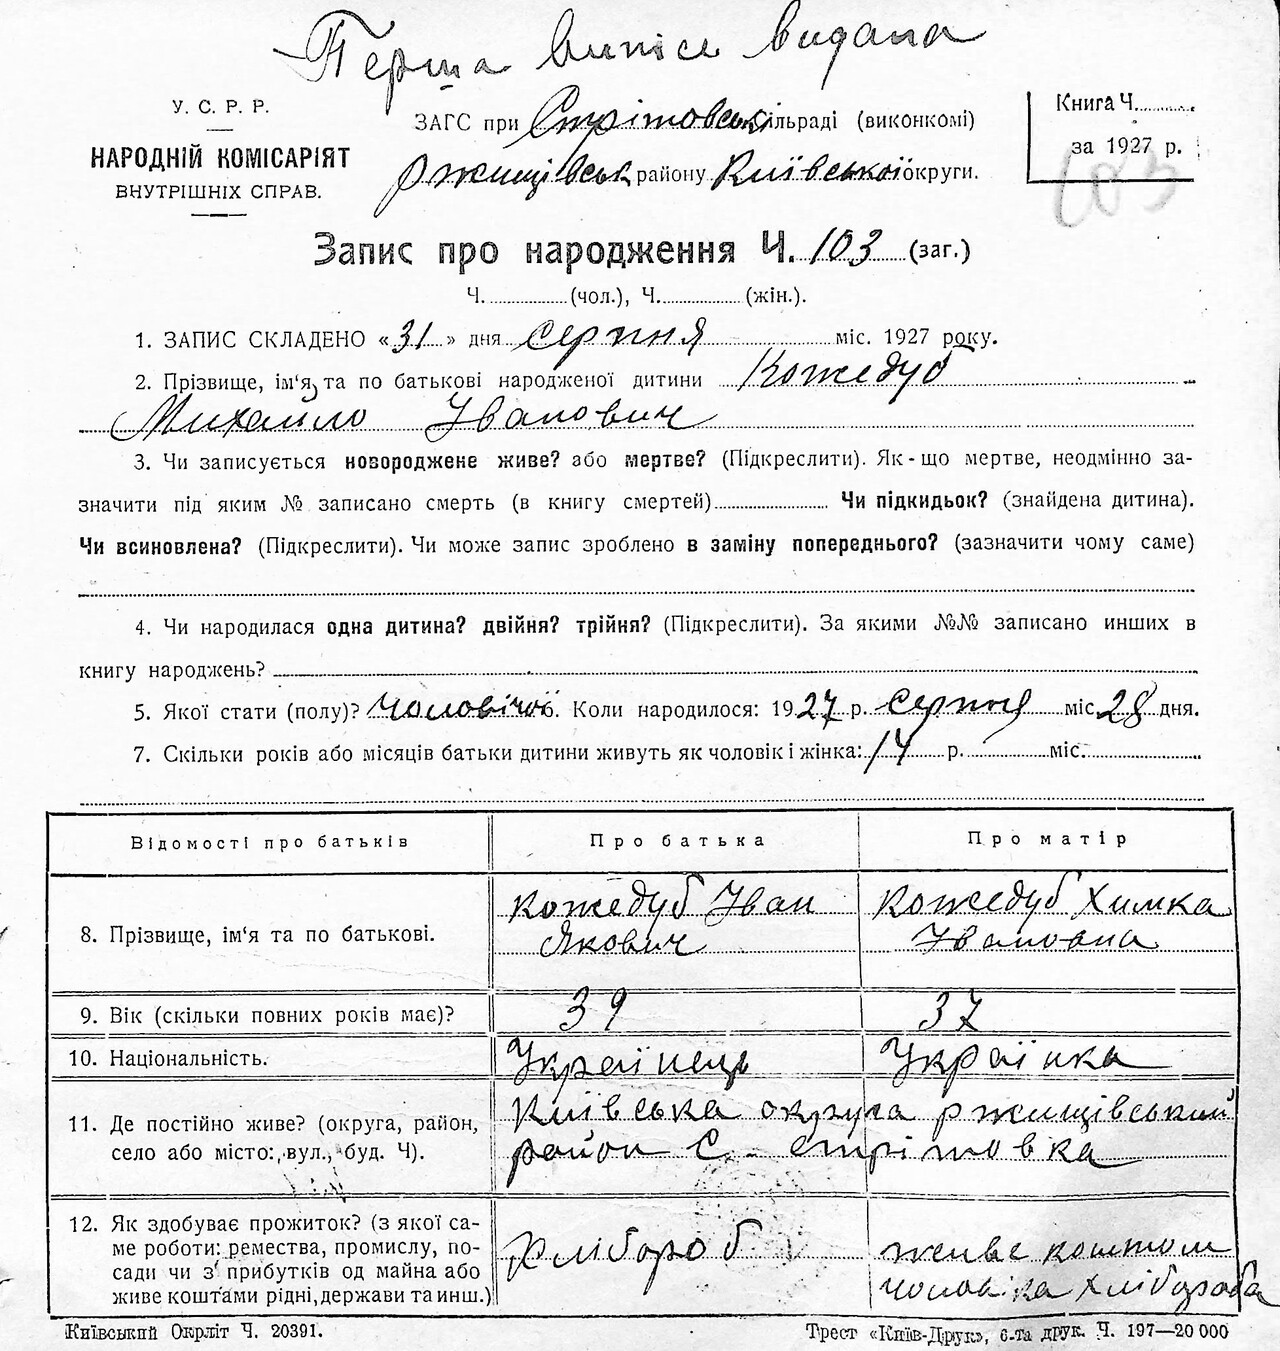 Перша виписс видана
У. С. Р. Р.
НАРОДНІЙ КОМІСАРІЯТ
ВНУТРІШНІХ СПРАВ.
ЗАГС при Стрітовськ ільраді (виконкомі)
Ржищівськ району Київської округи.
Книга Ч.
за 1927 р.
103
Запис про народження Ч. 103 (заг.)
Ч. (чол.), Ч. (жін.).
1. ЗАПИС СКЛАДЕНО «31» дня серпня міс. 1927 року.
2. Прізвище, ім'я, та по батькові народженої дитини Кожедуб
Михайло Іванович
3. Чи записується новороджене живе? або мертве? (Підкреслити). Як-що мертве, неодмінно за-
значити під яким № записано смерть (в книгу смертей) Чи підкидьок? (знайдена дитина).
Чи всиновлена? (Підкреслити). Чи може запис зроблено в заміну попереднього? (зазначити чому саме)
4. Чи народилася одна дитина? двійня? трійня? (Підкреслити). За якими №№ записано инших в
книгу народжень?
5. Якої стати (полу)? чоловічої 6. Коли народилося: 1927 р. серпня міс. 28 дня.
7. Скільки років або місяців батьки дитини живуть як чоловік і жінка: 14 р. міс.
Відомості про батьків Про батька Про матір
8. Прізвище, ім'я та по батькові. Кожедуб Іван Якович Кожедуб Химка Івановна
9. Вік (скільки повних років має)? 39 37
10. Національність. Українець Українка
11. Де постійно живе? (округа, район, Київська округа Ржищівський
село або місто: вул., буд. Ч). район с. Стрітовка
12. Як здобуває прожиток? (з якої са-
ме роботи: ремества, промислу, по- Хлібороб живе коштом
сади чи з прибутків од майна або чоловіка хлібороба
живе коштами рідні, держави та инш.)
Київський Окрліт Ч. 20391.
Трест «Київ-Друк», 6-та друк. Ч. 197—20 000